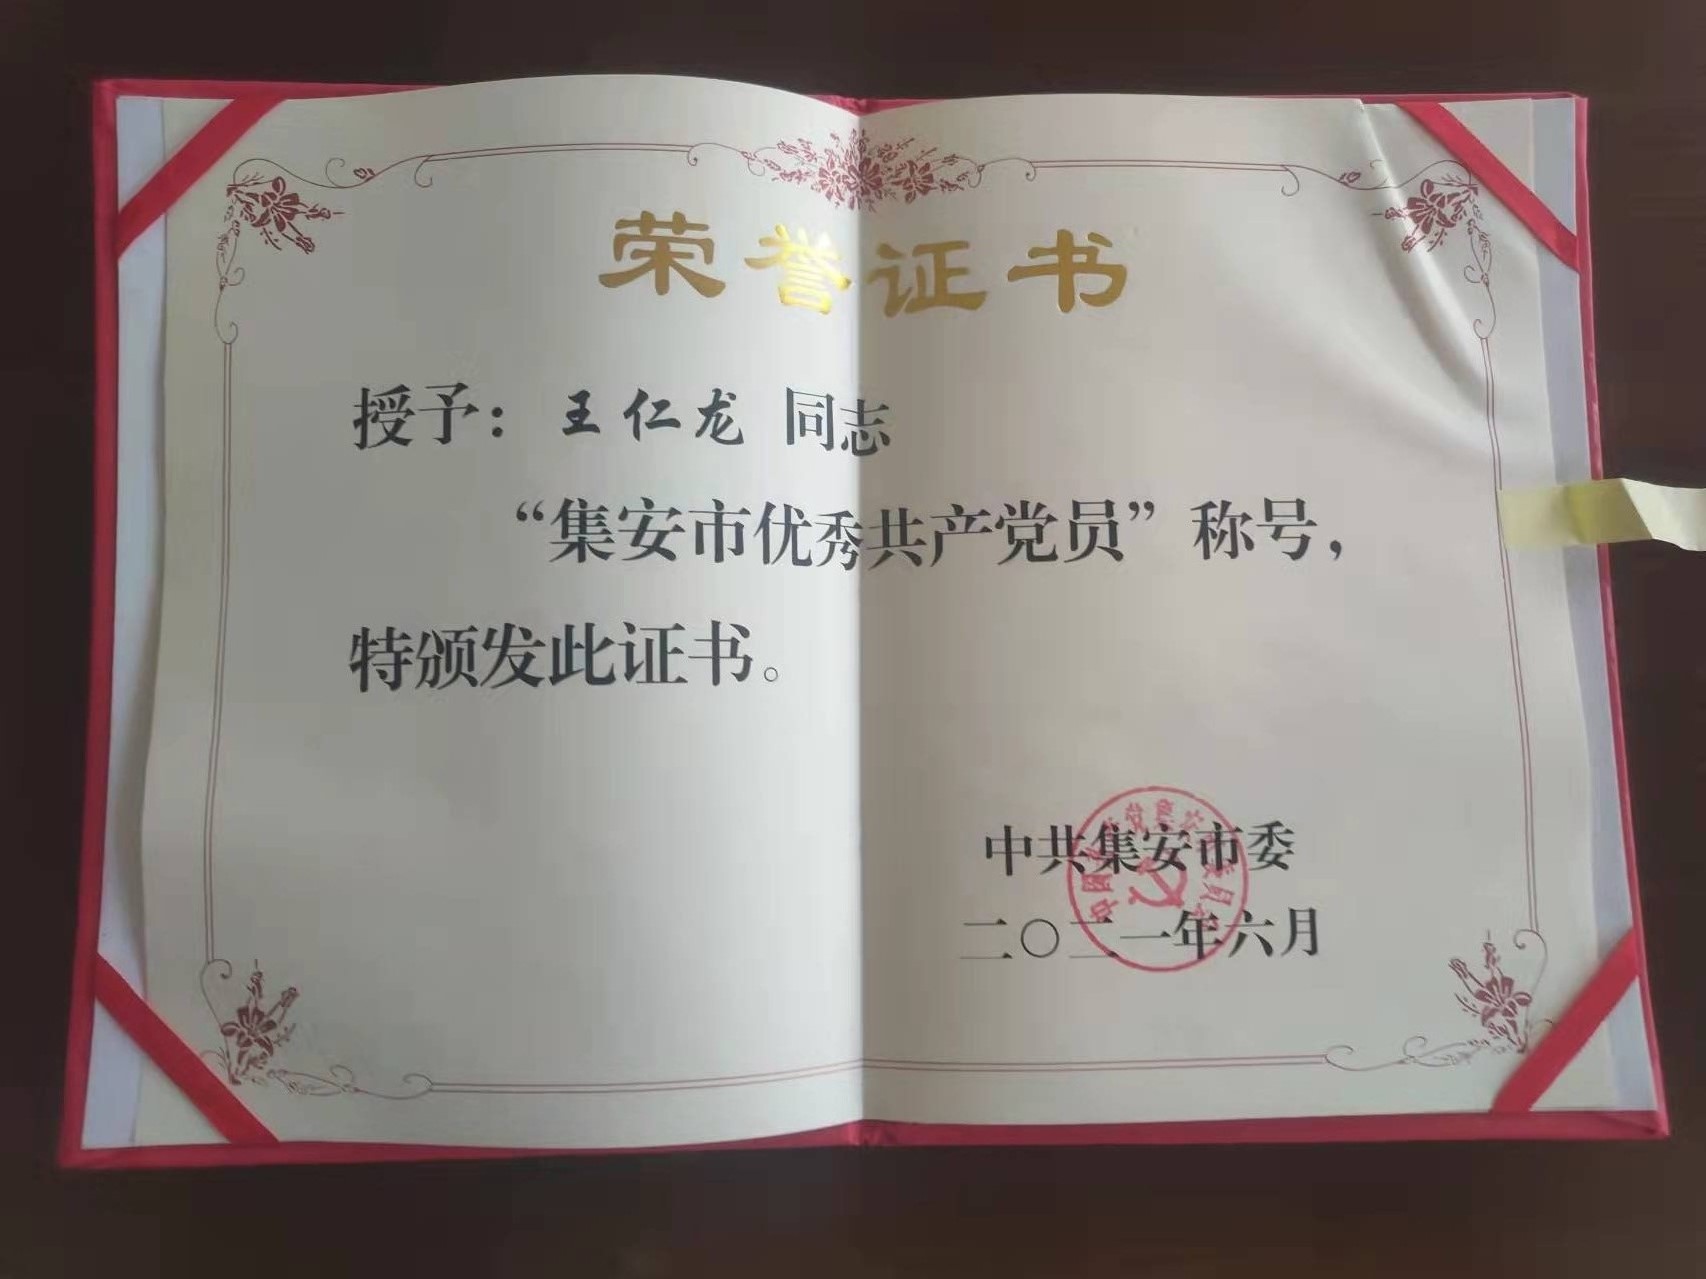 荣誉证书
授予：王仁龙 同志
“集安市优秀共产党员”称号，
特颁发此证书。
中共集安市委
二〇二一年六月